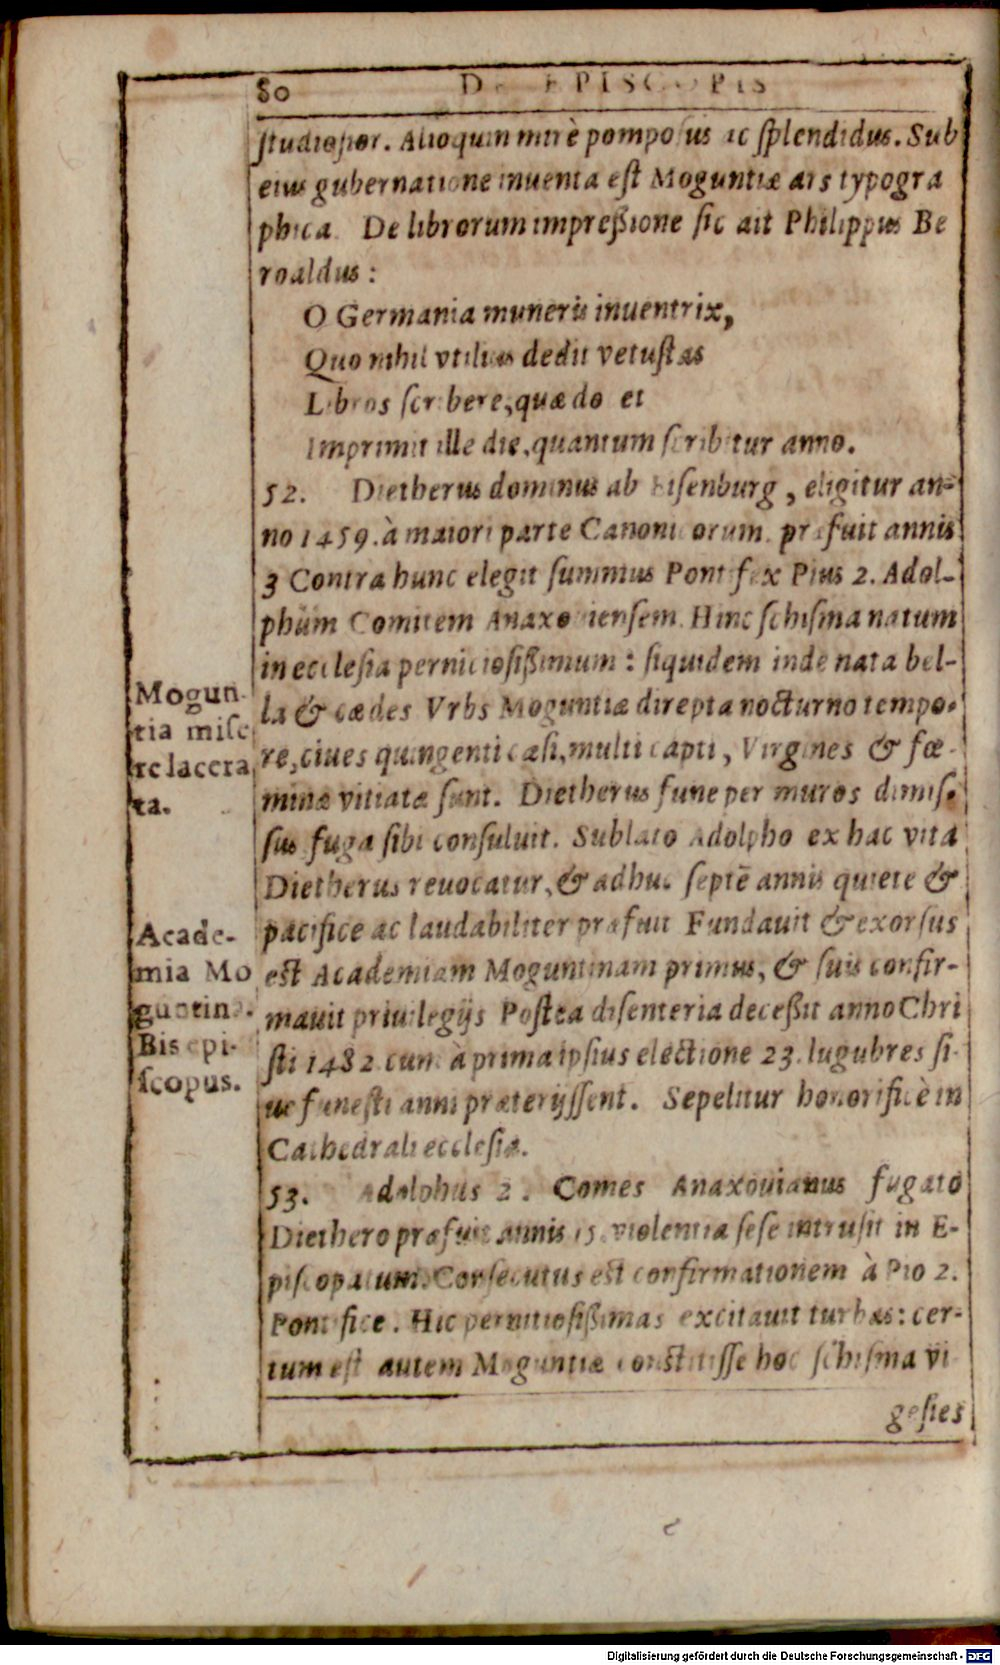 80 DE EPISCOPIS
studiosior. Alioquin mirè pomposus ac splendidus. Sub
eius gubernatione inuenta est Moguntiæ ars typogra
phica. De librorum impreßione sic ait Philippus Be
roaldus:
O Germania muneris inuentrix,
Quo nihil vtilius dedit vetustas
Libros scribere, quæ do et
Imprimit ille die, quantum scribitur anno.
52. Dietherus dominus ab Eisenburg, eligitur an-
no 1459. à maiori parte Canonicorum. præfuit annis
3 Contra hunc elegit summus Pontifex Pius 2. Adol-
phum Comitem Anaxouiensem. Hinc schisma natum
in ecclesia perniciosißimum: siquidem inde nata bel-
la & cædes Vrbs Moguntiæ direpta nocturno tempo-
re, ciues quingenti cæsi, multi capti, Virgines & fœ-
minæ vitiatæ sunt. Dietherus fune per muros dimis-
sus fuga sibi consuluit. Sublato Adolpho ex hac vita
Dietherus reuocatur, & adhuc septē annis quiete &
pacifice ac laudabiliter præfuit Fundauit & exorsus
est Academiam Moguntinam primus, & suis confir-
mauit priuilegijs Postea disenteria deceßit anno Chri
sti 1482. cum à prima ipsius electione 23. lugubres si-
ue funesti anni præterijssent. Sepelitur honorificè in
Cathedrali ecclesia.
53. Adolphus 2. Comes Anaxouianus fugato
Diethero præfuit annis 15. violentia sese intrusit in E-
piscopatum. Consecutus est confirmationem à Pio 2.
Pontifice. Hic pernitiosißimas excitauit turbas: cer-
tum est autem Moguntiæ constitisse hoc schisma vi
gesies
Mogun-
tia mise
re lacera
ta.
Acade-
mia Mo
guntina.
Bis epi-
scopus.
Digitalisierung gefördert durch die Deutsche Forschungsgemeinschaft - DFG